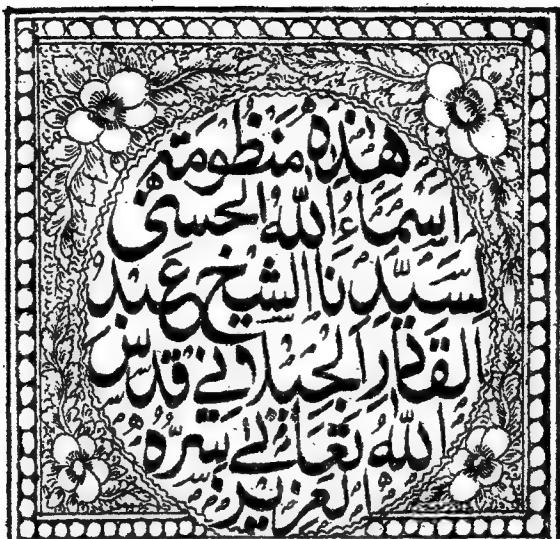 هٰذِهٖ مَنْظُومَةُ
اَسْمَاءُ اللّٰهِ الْحُسْنٰى
لِسَيِّدِنَا الشَّيْخِ عَبْدِ
الْقَادِرِ الْجِيْلَانِيْ قَدَّسَ
اللّٰهُ تَعَالٰى سِرَّهُ
الْعَزِيْزِ